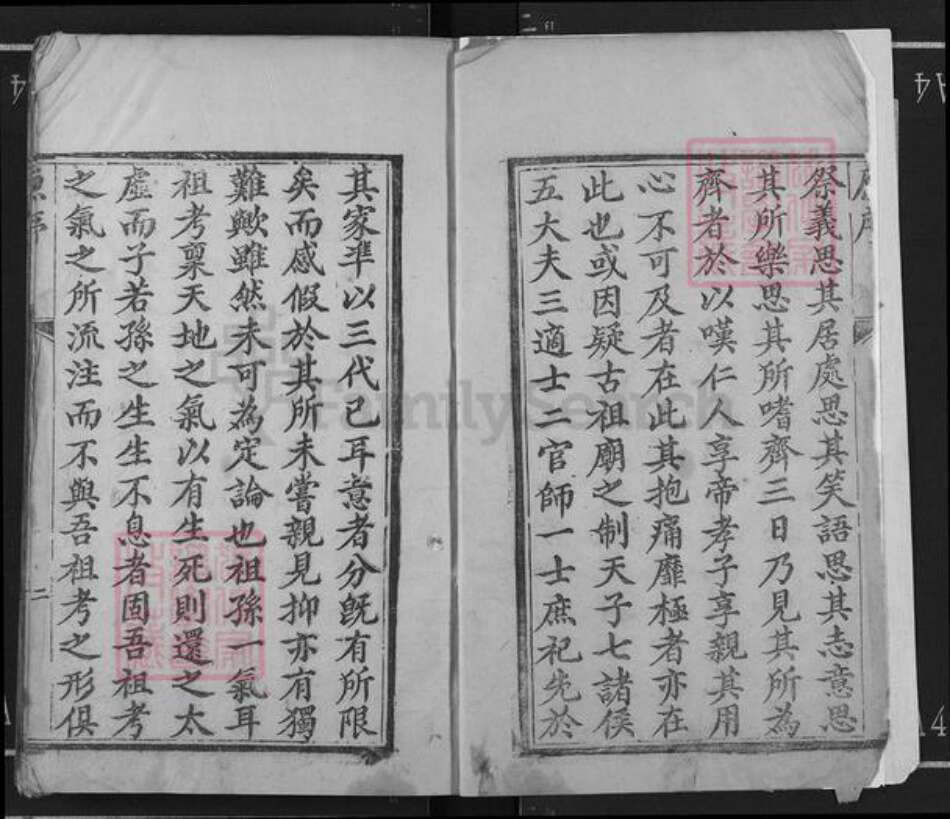 祭義思其居處思其笑語思其志意思
其所樂思其所嗜齊三日乃見其所為
齊者於以嘆仁人享帝孝子享親其用
心不可及者在此其抱痛靡極者亦在
此也或因疑古祖廟之制天子七諸侯
五大夫三適士二官師一士庶祀先於
其家準以三代已耳意者分既有所限
矣而感假於其所未嘗親見抑亦有獨
難歟雖然未可為定論也祖孫一氣耳
祖考稟天地之氣以有生死則還之太
虛而子若孫之生生不息者固吾祖考
之氣之所流注而不與吾祖考之形俱
二
FamilySearch